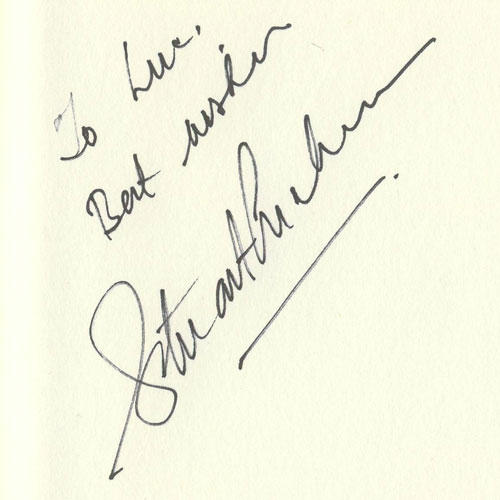 To Luc,
Best wishes
Stuart